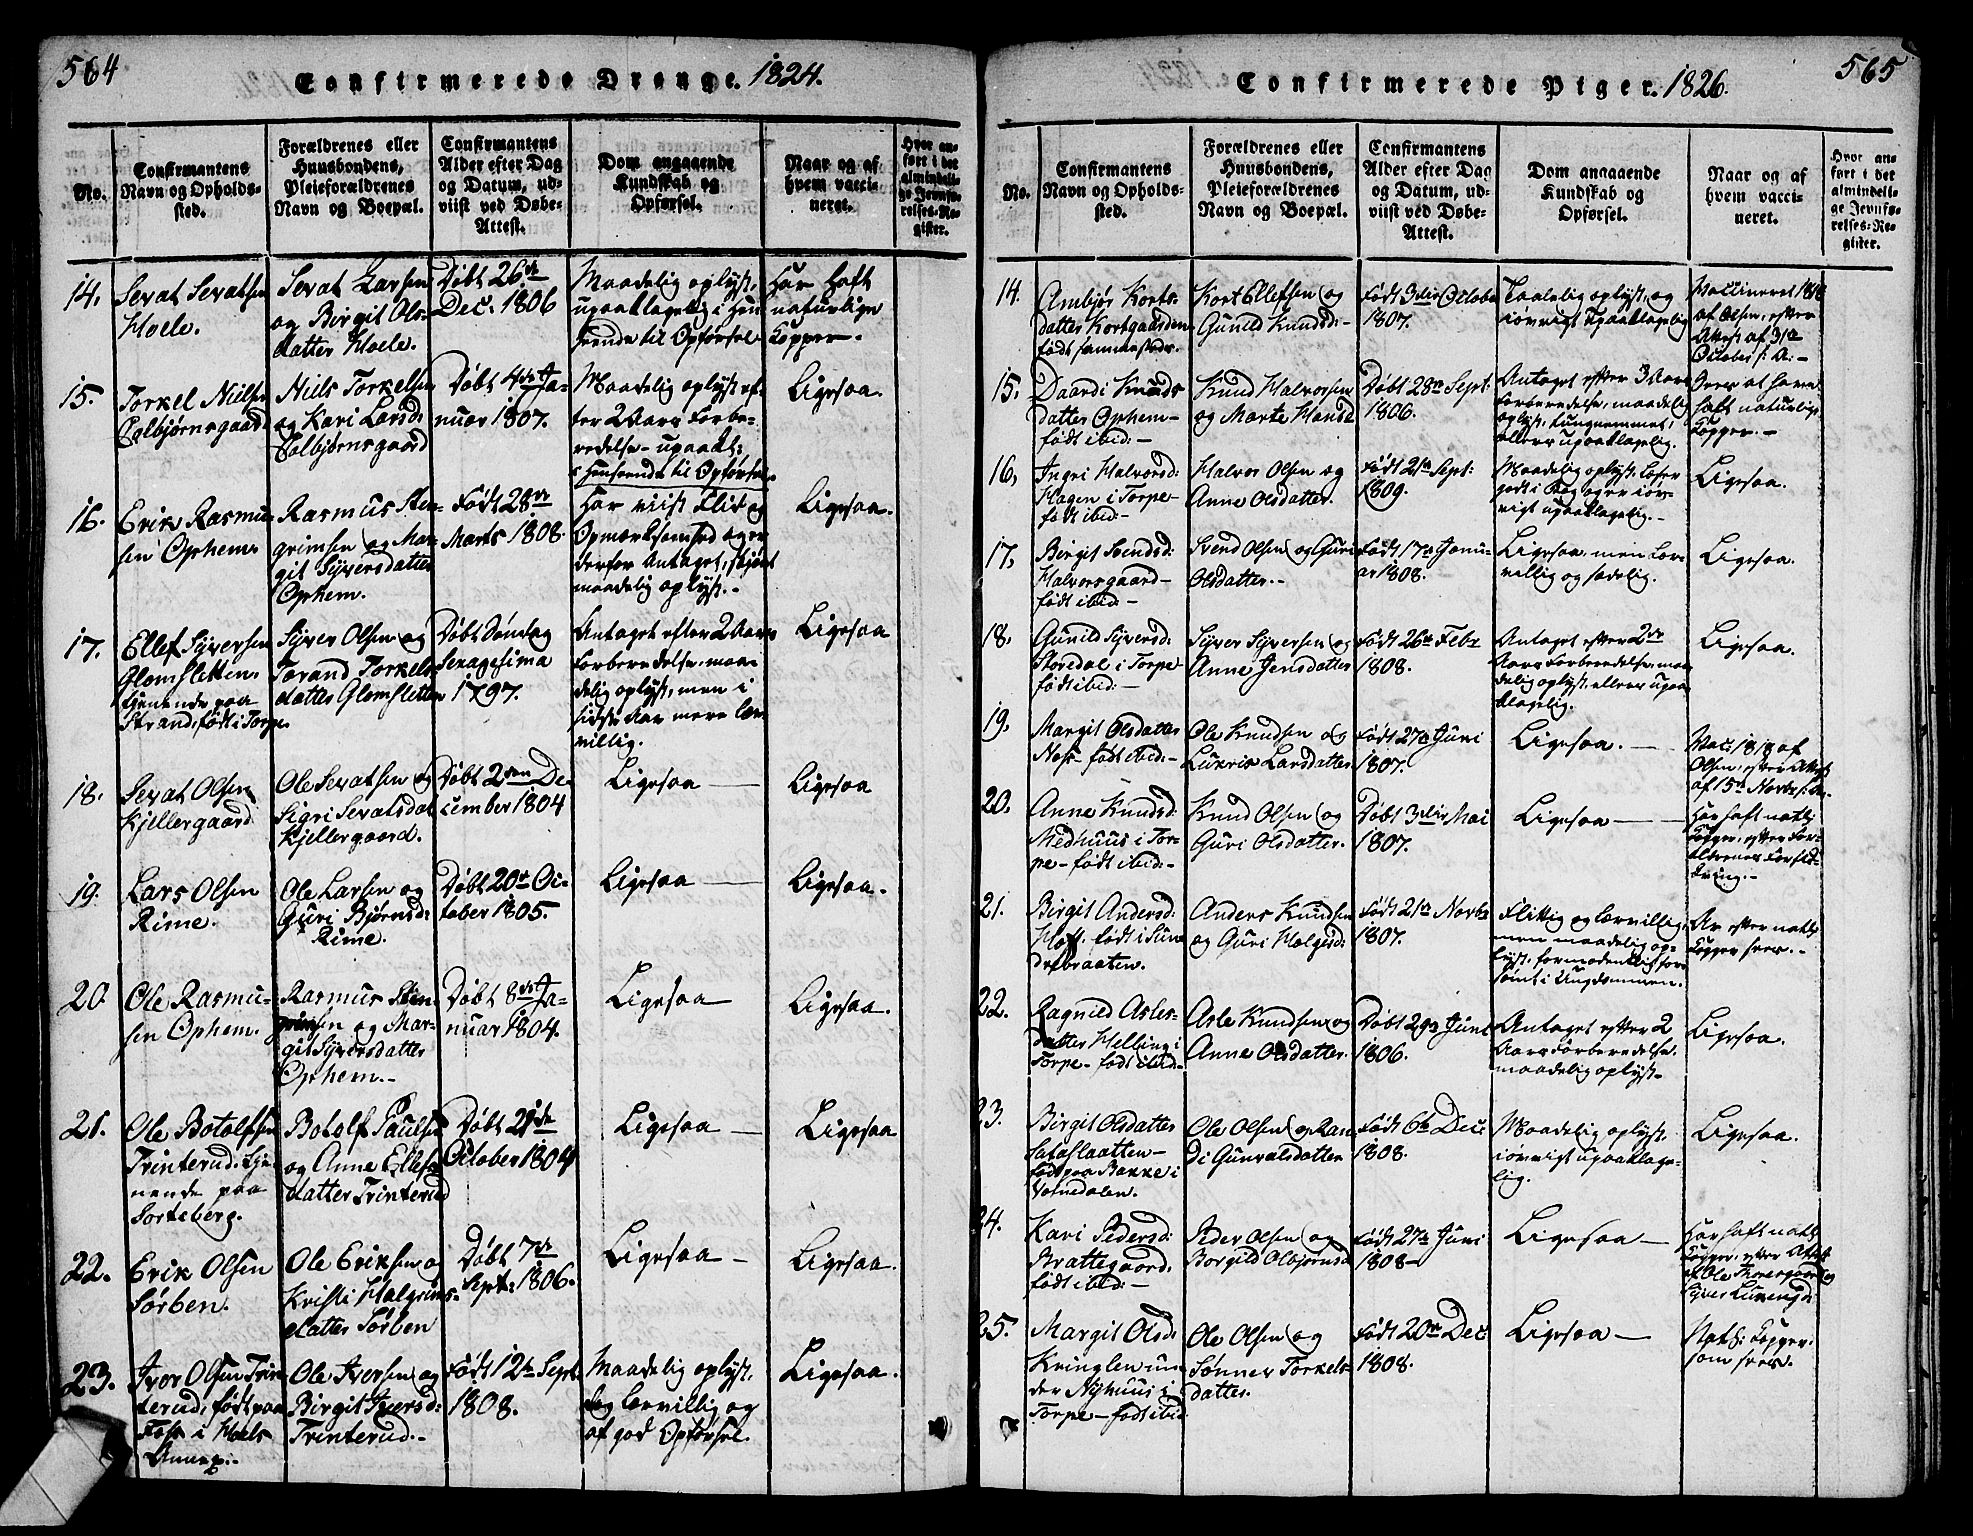 564
Confirmerede Drenge. 1824.
No.
Confirmantens
Navn og Opholds-
sted.
Forældrenes eller
Huusbondens,
Pleieforældrenes
Navn og Boepæl.
Confirmantens
Alder efter Dag
og Datum, ud-
viist ved Døbe-
Attest.
Dom angaaende
Kundskab og
Opførsel.
Naar og af
hvem vacci-
neret.
Hvor an-
ført i det
almindeli-
ge Jevnfø-
relses-Re-
gister.
14.
Sevat Sevatsen
Hoele.
Sevat Larsen
og Birgit Ols-
datter Hoele.
Døbt 26de
Dec. 1806
Maadelig oplyst,
upaaklagelig i Hen-
seende til Opførsel
Har haft
naturlige
Kopper.
15.
Torkel Nielsen
Niels Torkelsen
og Kari Larsd:
Døbt 4de Ja-
nuar 1807.
Maadelig oplyst ef-
ter 2 Aars Forbe-
redelse - upaakl:
i Henseende til Opførsel.
Ligesaa.
16.
Erik Rasmu-
sen Ophem.
Rasmus Sten-
grimsen og Mar-
git Syversdatter
Ophem.
Født 28de
Marts 1808.
Har viist Flid og
Opmærksomhed og er
derfor Antaget, skjønt
maadelig oplyst.-
Ligesaa.
17.
Ellef Syversen
Glomsletten,
tjenende paa
Strand, født i Torpe.
Syver Olsen og
Torand Torkels-
datter Glomsletten
Døbt Søndag
Sexagesima
1797.
Antaget efter 2 Aars
Forberedelse, maa-
delig oplyst, men i
sidste Aar mere lær-
villig.
Ligesaa
18.
Sevat Olsen
Kjellergaard
Ole Sevatsen og
Sigri Sevatsdat
Kjellergaard.
Døbt 2den De-
cember 1804
Ligesaa —
Ligesaa
19.
Lars Olsen
Rime.
Ole Larsen og
Guri Bjørnsd:
Rime.
Døbt 20de Oc-
tober 1805.
Ligesaa —
Ligesaa.
20.
Ole Rasmu-
sen Ophem.
Rasmus Sten-
grimsen og Mar-
git Syversdatter
Ophem.-
Døbt 8de Ja-
nuar 1804.
Ligesaa —
Ligesaa.
21.
Ole Botolfsen
Trinterud. tje-
nende paa
Sorteberg.
Botolf Paulsen
og Anne Ellefs-
datter Trinterud
Døbt 21de
October 1804
Ligesaa —
Ligesaa
22.
Erik Olsen
Sørben.
Ole Eriksen og
Kristi Halgrims-
datter Sørben
Døbt 7de
Sept: 1806.
Ligesaa —
Ligesaa.
23.
Iver Olsen Trin-
terud, født paa
Foss i Hoels
Annex.-
Ole Iversen og
Birgit Iversd:
Trinterud.-
Født 12te Sept.
1808.
Maadelig oplyst,
dog lærvillig og
af god Opførsel.
Ligesaa.
565
Confirmerede Piger. 1826.
No.
Confirmantens
Navn og Opholds-
sted.
Forældrenes eller
Huusbondens,
Pleieforældrenes
Navn og Boepæl.
Confirmantens
Alder efter Dag
og Datum, ud-
viist ved Døbe-
Attest.
Dom angaaende
Kundskab og
Opførsel.
Naar og af
hvem vacci-
neret.
Hvor an-
ført i det
almindeli-
ge Jevnfø-
relses-Re-
gister.
14.
Ambjør Korts-
datter Kortgaarden
født sammesteds.
Kort Ellefsen og
Gunild Knudsd:-
Født 3die Octobr
1807.
Taalelig oplyst, og
iøvrigt upaaklagelig
Vaccineret
af Olsen, efter
Attest af 31te
October s. A.-
15.
Daardi Knuds-
datter Ophem-
født ibid:-
Knud Halvorsen
og Marte
Døbt 28de Sept.
1806.
Antaget efter 3 Aars
Forberedelse, maadelig
oplyst, tungnemmet,
ellers upaaklagelig.
Sees at have
haft naturlige
Kopper.-
16.
Ingri Halvorsd:
Hagen i Torpe-
født ibid:-
Halvor Olsen og
Anne Olsdatter.
Født 21de Sept:
1809.
Maadelig oplyst, læser
godt i Bog og er iøv-
rigt upaaklagelig.-
Ligesaa.
17.
Birgit Svendsd:
Halvorsgaard-
født ibid:-
Svend Olsen og Guri
Olsdatter.-
Født 17de Janu-
ar 1808.
Ligesaa, men lær-
villig og sædelig.
Ligesaa.
18.
Gunild Syversd:
Storedal i Torpe
født ibid:-
Syver Syversen og
Anne Jensdatter
Født 26de Febr
1808.
Antaget efter 2de
Aars Forberedelse, maa-
delig oplyst, ellers upaa-
klagelig.
Ligesaa.
19.
Margit Olsdatter
Næss- født ibid:-
Ole Knudsen og
Lukris Larsdatter
Født 27de Juni
1807.
Ligesaa.—
Vac: 1818 af
Olsen, efter Attest
af 15de Novbr s: A.
20.
Anne Knudsd:
Medhuus i Tor-
pe- født ibid:-
Knud Olsen og
Guri Olsdatter.
Døbt 3die Mai
1807.
Ligesaa —
Har haft natl:
Kopper, efter For-
ældrenes Forsik-
kring.-
21.
Birgit Andersd:
Hoff. født i Sun-
drebraaten.
Anders Knudsen
og Guri Helgesd:
Født 21de Novbr
1807.
Flittig og lærvillig,
men maadelig op-
lyst, formodentlig for-
sømt i Ungdommen.
Ar efter natl:
Kopper sees.-
22.
Ragnild Asles-
datter Helling i
Torpe- født ibid:-
Asle Knudsen og
Anne Olsdatter.
Døbt 29de Juni
1806.
Antaget efter 2
Aars Forberedelse.
maadelig oplyst-
Ligesaa.
23.
Birgit Olsdatter
Sataslaatten-
født paa Bakke i
Vatnedalen.
Ole Olsen og Ran-
di Gunvalsdatter
Født 6te Dec:
1808.
Maadelig oplyst
iøvrigt upaaklage-
lig.
Ligesaa.
24.
Kari Pedersd:
Brattegaard.
født ibid:-
Peder Olsen og
Borgild Olbjørnsd
Født 27de Juni
1808-
Ligesaa —
Har haft natl:
Kopper, efter Attest
af Ole Thoresgaard og
Syver
25.
Margit Olsd:
Kringlen un-
der Nyhuus i
Torpe- født ibid
Ole Olsen og
Sønnev Torkels-
datter.
Født 20de Dec:
1808.
Ligesaa —
Natl: Kopper.
som sees.